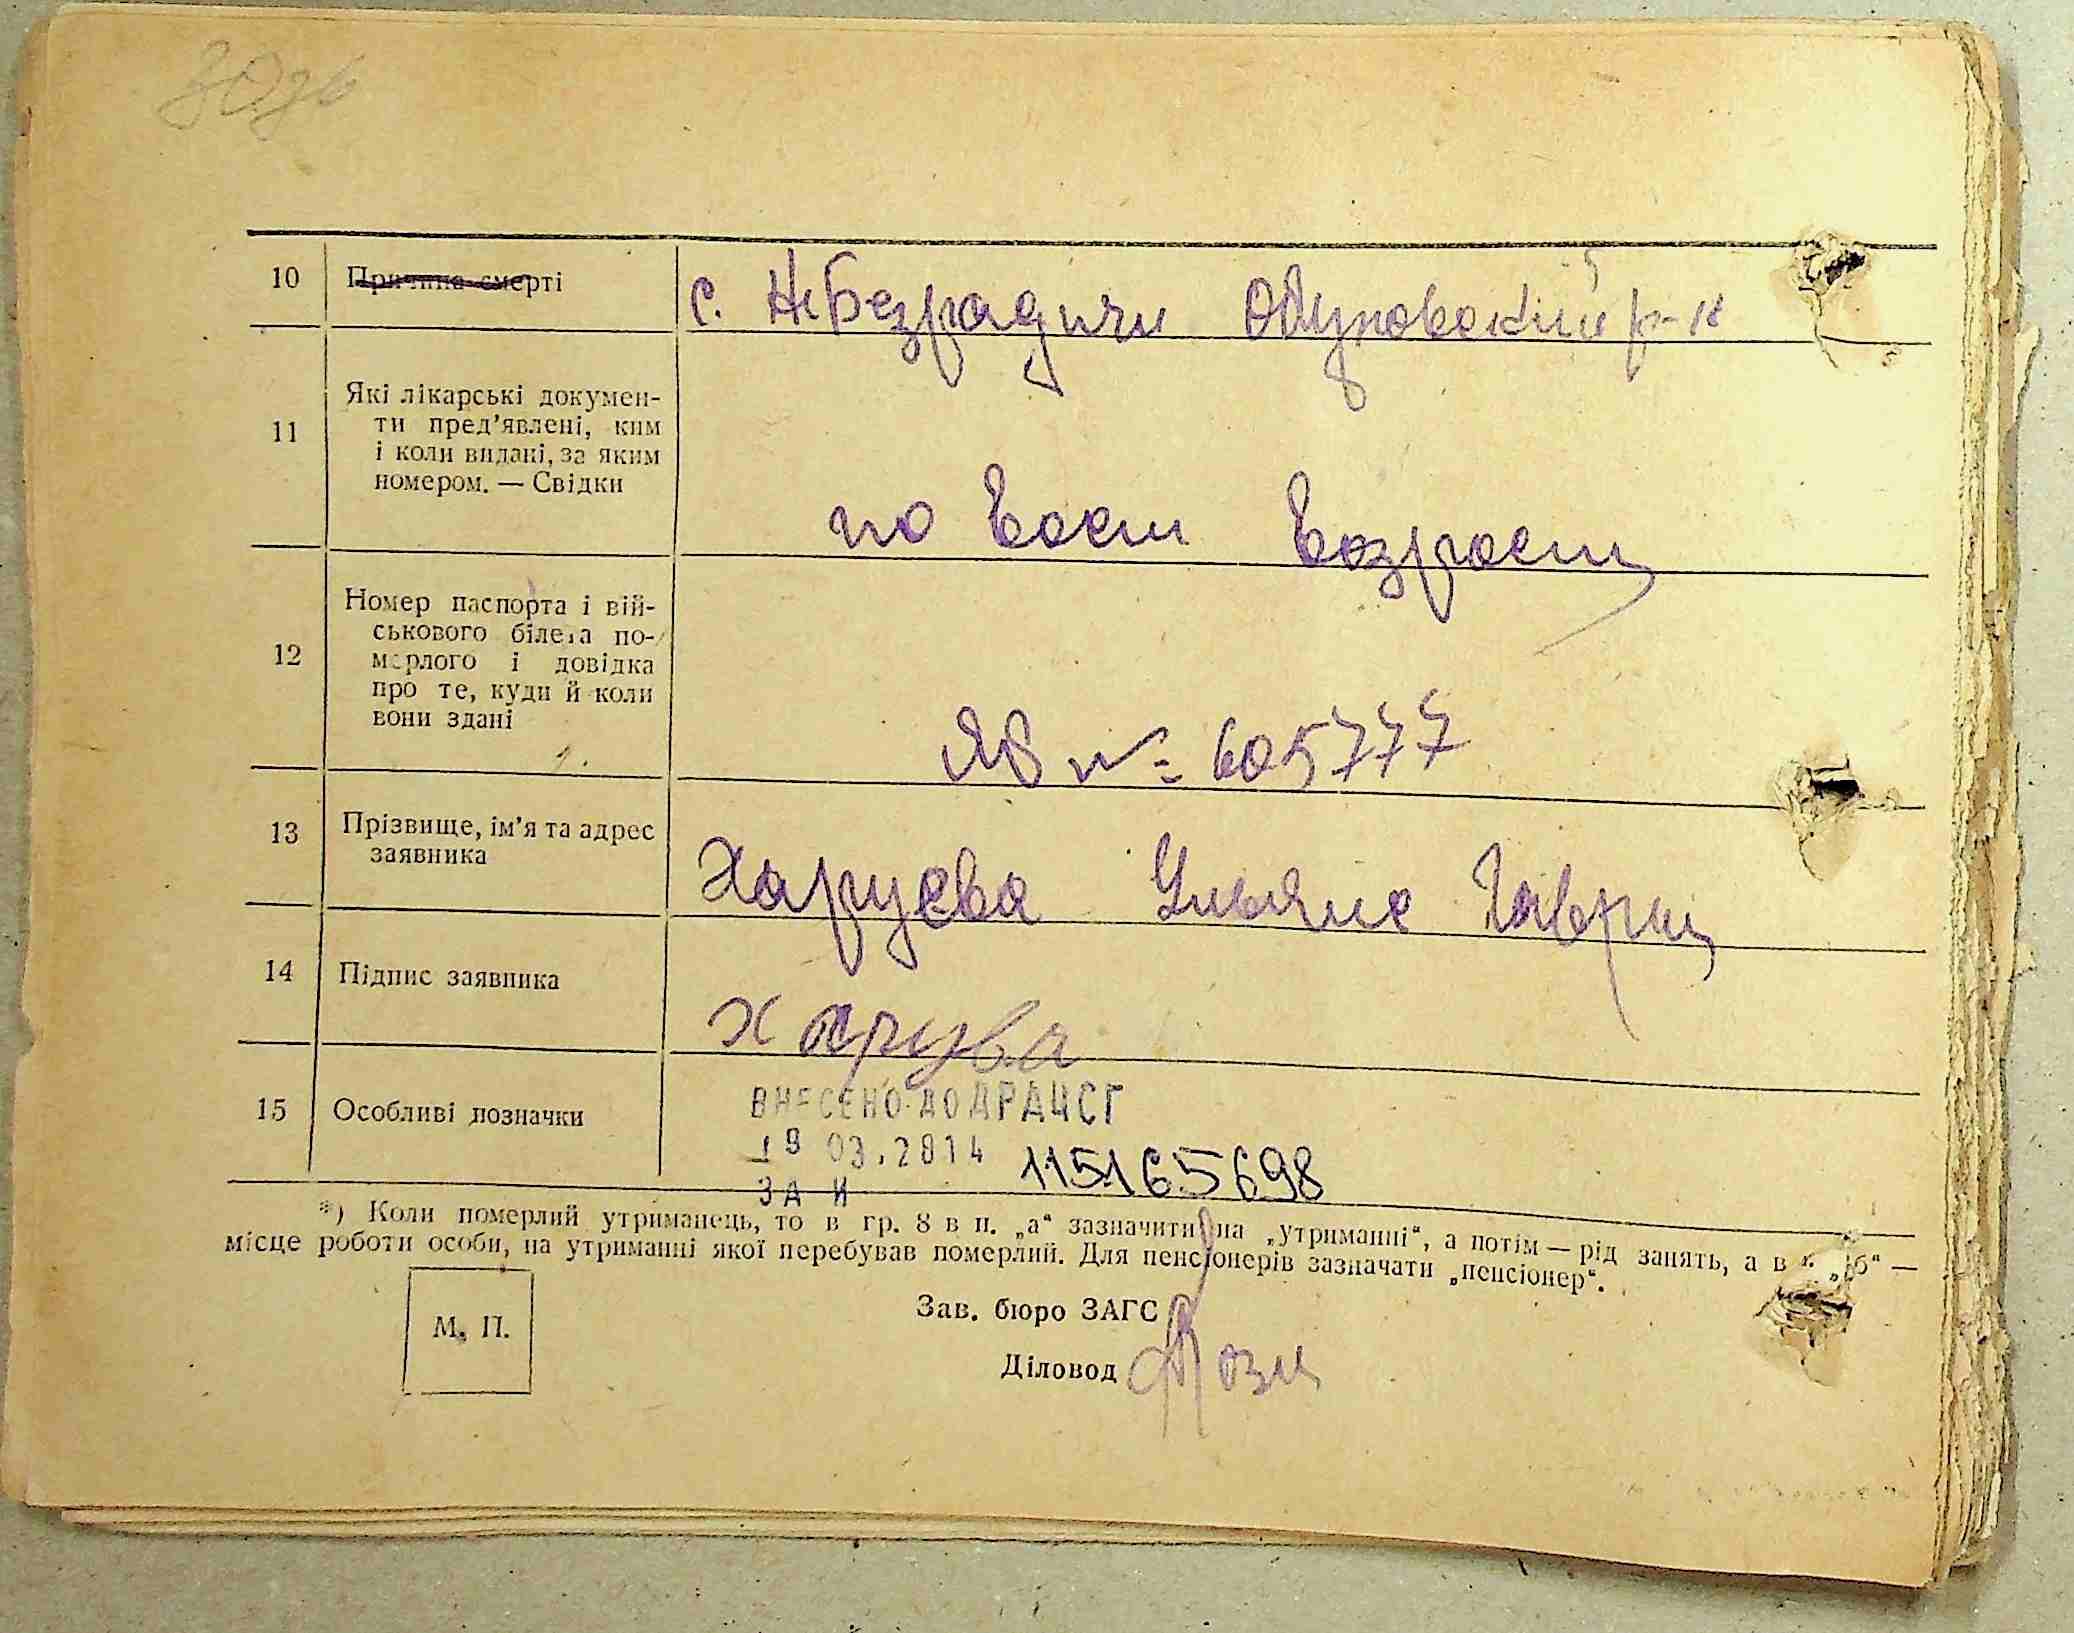 10 Причина смерті с. Н-Безрадичи Обуховский р-н
11 Які лікарські докумен-
ти пред'явлені, ким
і коли видані, за яким
номером. — Свідки
по воен возраст
12 Номер паспорта і вій-
ськового білета по-
мерлого і довідка
про те, куди й коли
вони здані
ЯБ № 605777
13 Прізвище, ім'я та адрес
заявника
Харуева Ульяна Гаври
14 Підпис заявника
Харува
15 Особливі позначки
ВНЕСЕНО ДО ДРАЦСГ
19 03.2014
ЗА N 115165698
*) Коли померлий утриманець, то в гр. 8 в п. „а“ зазначити на „утриманні“, а потім — рід занять, а в п. „б“ —
місце роботи особи, на утриманні якої перебував померлий. Для пенсіонерів зазначати „пенсіонер“.
М. П.
Зав. бюро ЗАГС
Діловод